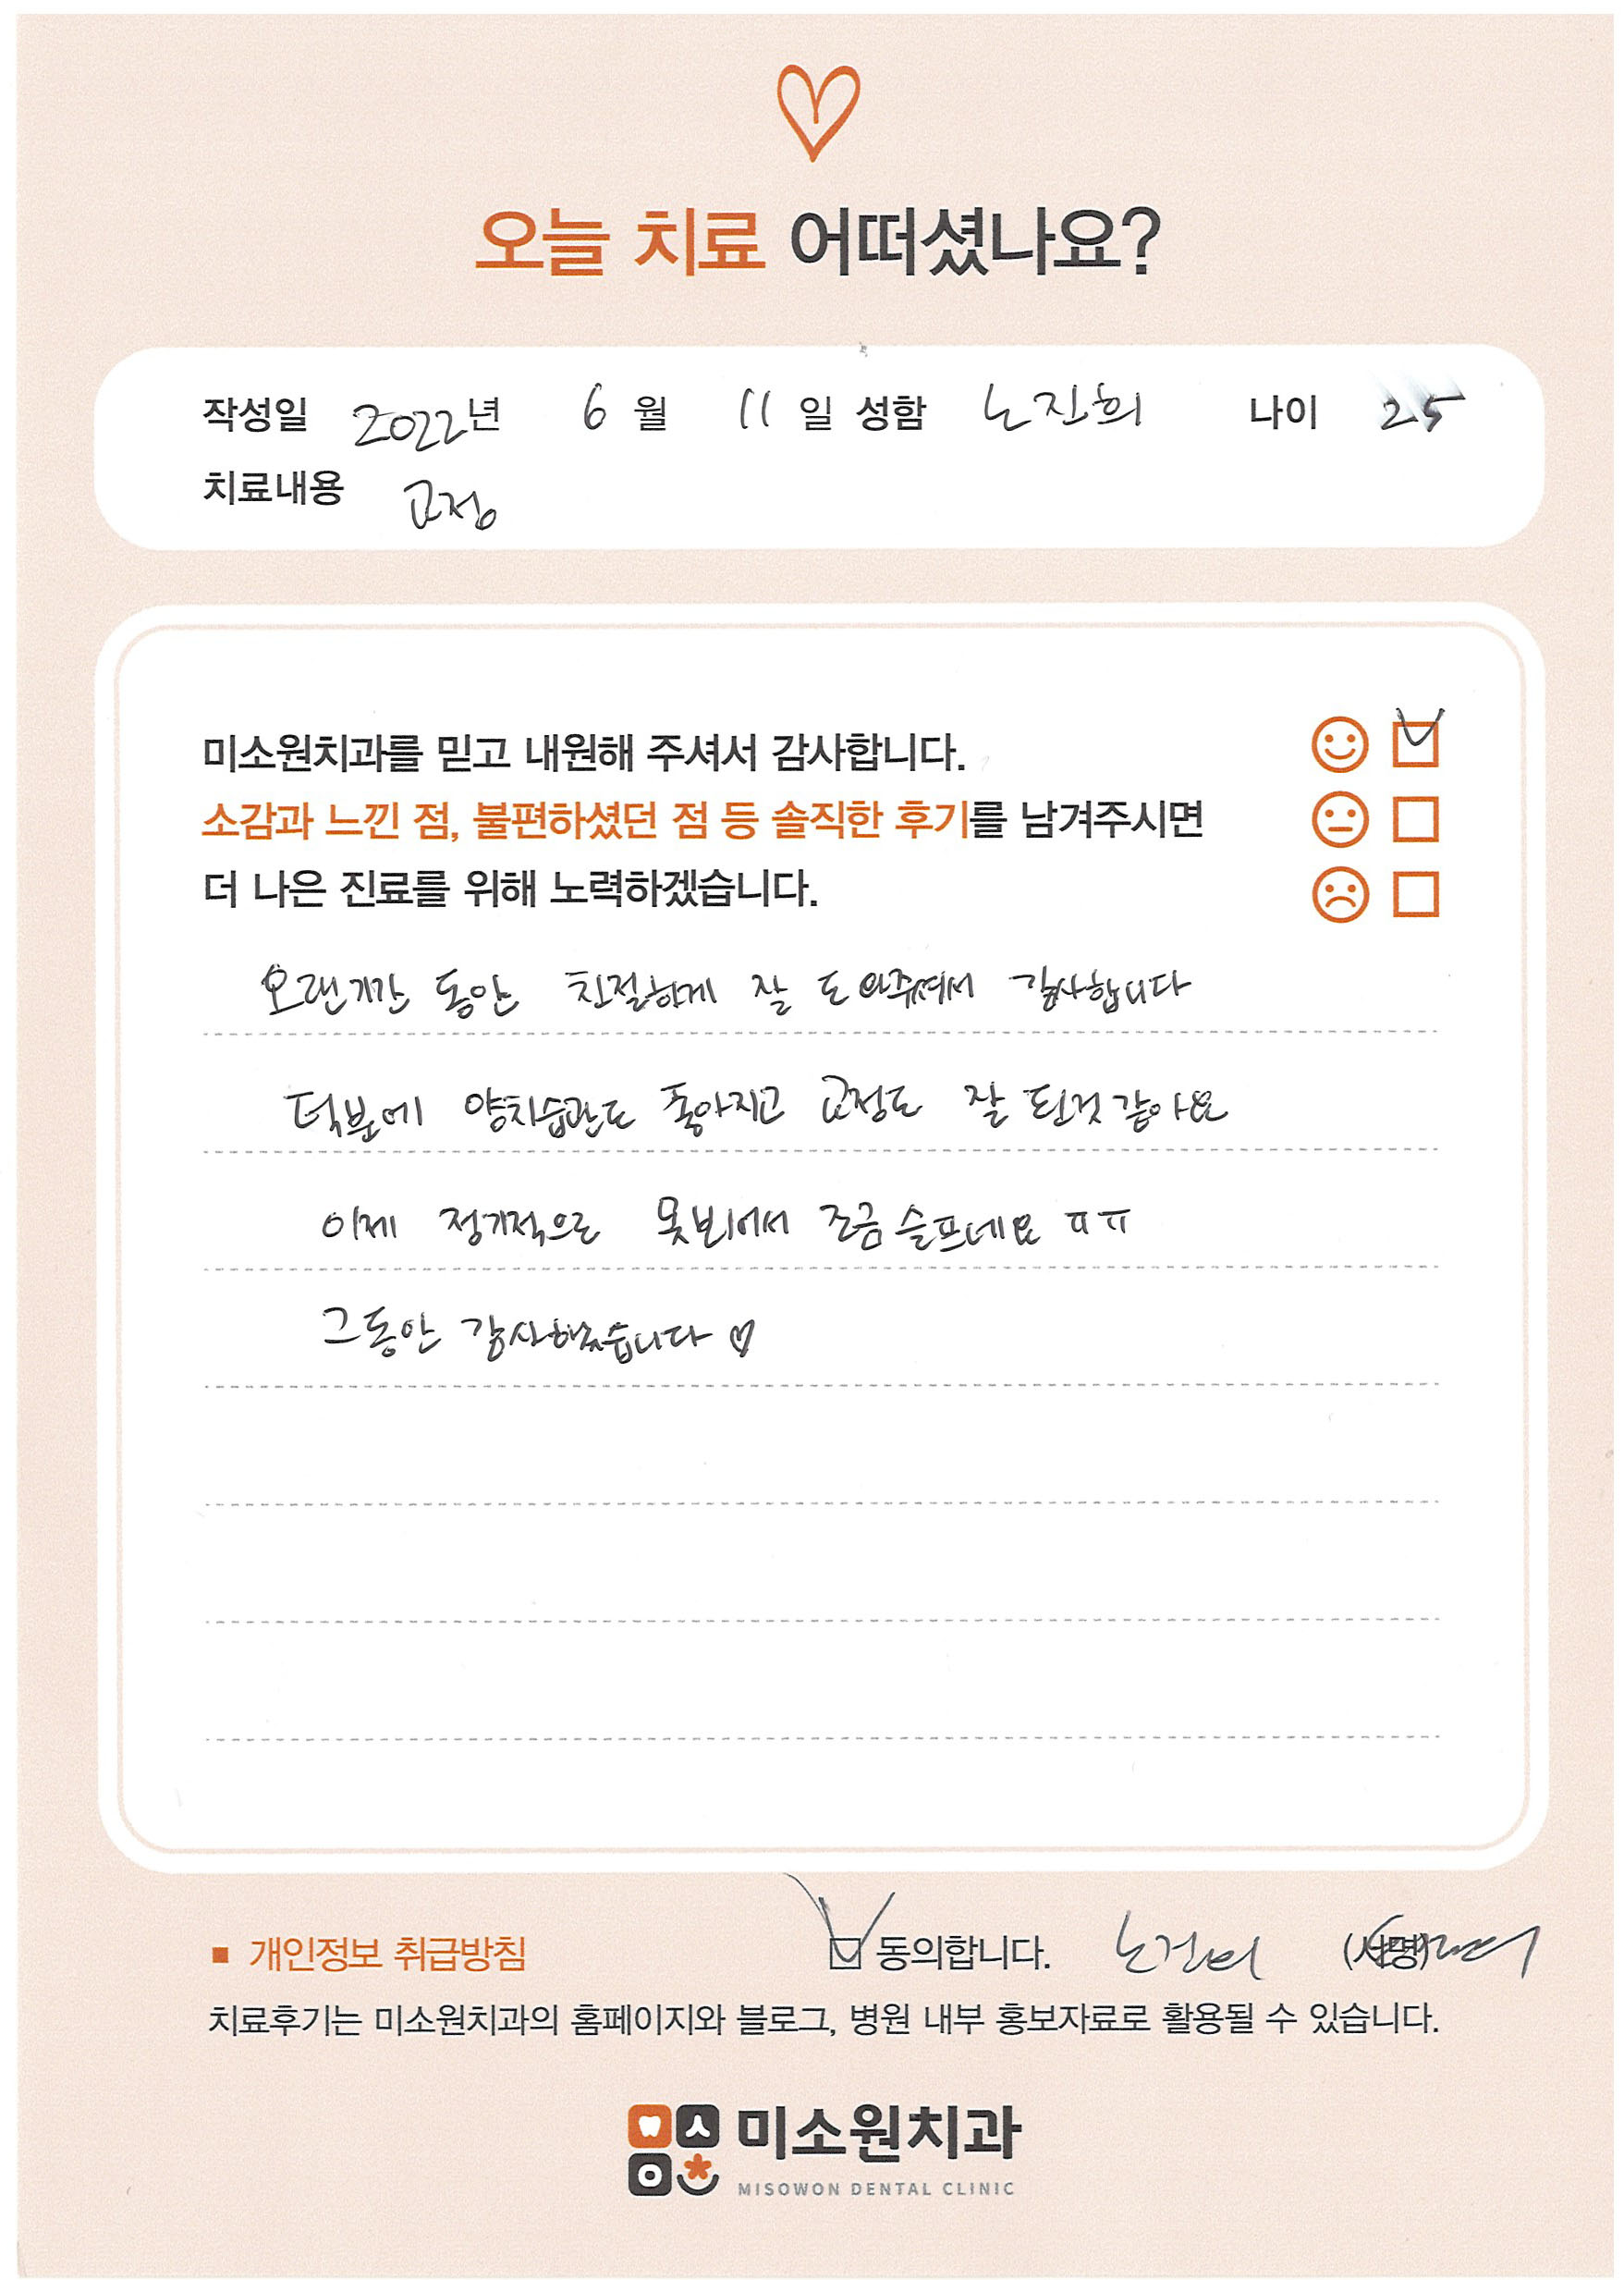 오늘 치료 어떠셨나요?
작성일 2022년 6월 11일 성함 노진희 나이 25
치료내용 교정
미소원치과를 믿고 내원해 주셔서 감사합니다.
소감과 느낀 점, 불편하셨던 점 등 솔직한 후기를 남겨주시면
더 나은 진료를 위해 노력하겠습니다.
오랜기간 동안 친절하게 잘 도와주셔서 감사합니다
덕분에 양치습관도 좋아지고 교정도 잘 된것 같아요
이제 정기적으로 못뵈어서 조금 슬프네요 ㅠㅠ
그동안 감사했습니다 ♡
■ 개인정보 취급방침 동의합니다. (서명)
치료후기는 미소원치과의 홈페이지와 블로그, 병원 내부 홍보자료로 활용될 수 있습니다.
미소원치과
MISOWON DENTAL CLINIC